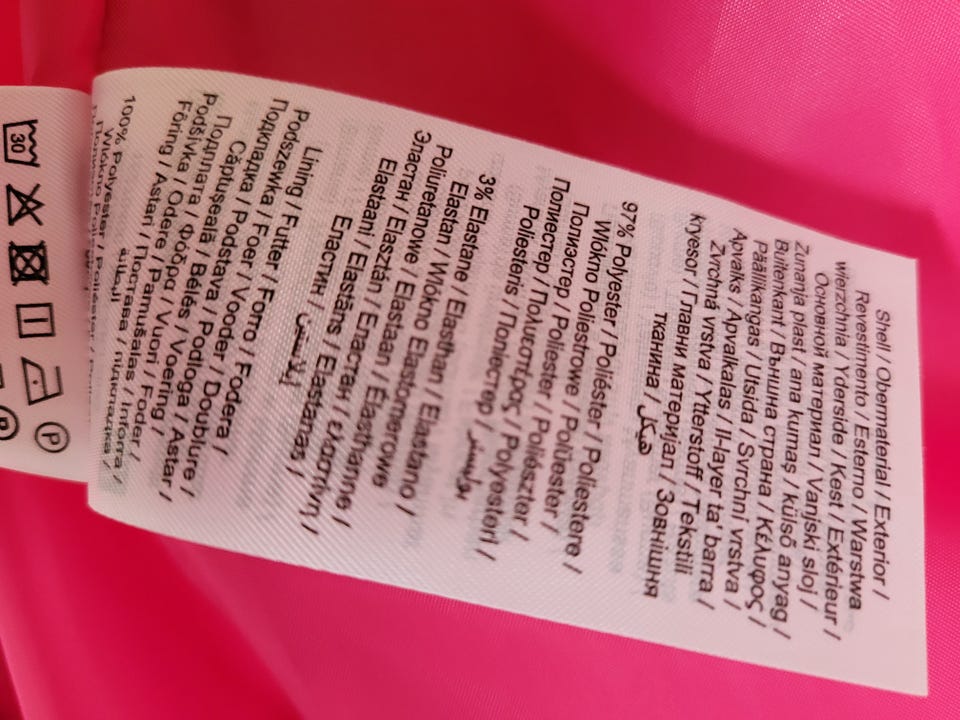 Shell / Obermaterial / Exterior /
Revestimento / Esterno / Warstwa
wierzchnia / Yderside / Kest / Extérieur /
Основной материал / Vanjski sloj /
Zunanja plast / ana kumaş / külső anyag /
Buitenkant / Външна страна / Κέλυφος /
Päällikangas / Utsida / Svrchní vrstva /
Apvalks / Apvalkalas / Il-layer ta' barra /
Zvrchná vrstva / Ytterstoff / Tekstili
kryesor / Главни материјал / Зовнішня
тканина / هيكل
97% Polyester / Poliéster / Poliestere /
Włókno Poliestrowe / Polüester /
Полиэстер / Poliester / Poliészter /
Полиестер / Πολυεστέρας / Polyesteri /
Poliesteris / Поліестер / بوليستر
3% Elastane / Elasthan / Elastano /
Elastan / Włókno Elastomerowe
Poliuretanowe / Elastaan / Élasthanne /
Эластан / Elasztán / Еластан / ελαστίνη /
Elastaani / Elastāns / Elastanas /
Еластин / إيلاستين
Lining / Futter / Forro / Fodera /
Podszewka / Foer / Vooder / Doublure /
Подкладка / Podstava / Podloga / Astar /
Căptușeală / Bélés / Voering /
Подплата / Φόδρα / Vuori / Foder /
Podšívka / Odere / Pamušalas / Inforra /
Fôring / Astari / Постава / підкладка /
100% Polyester / Poliéster /
Włókno
30
P